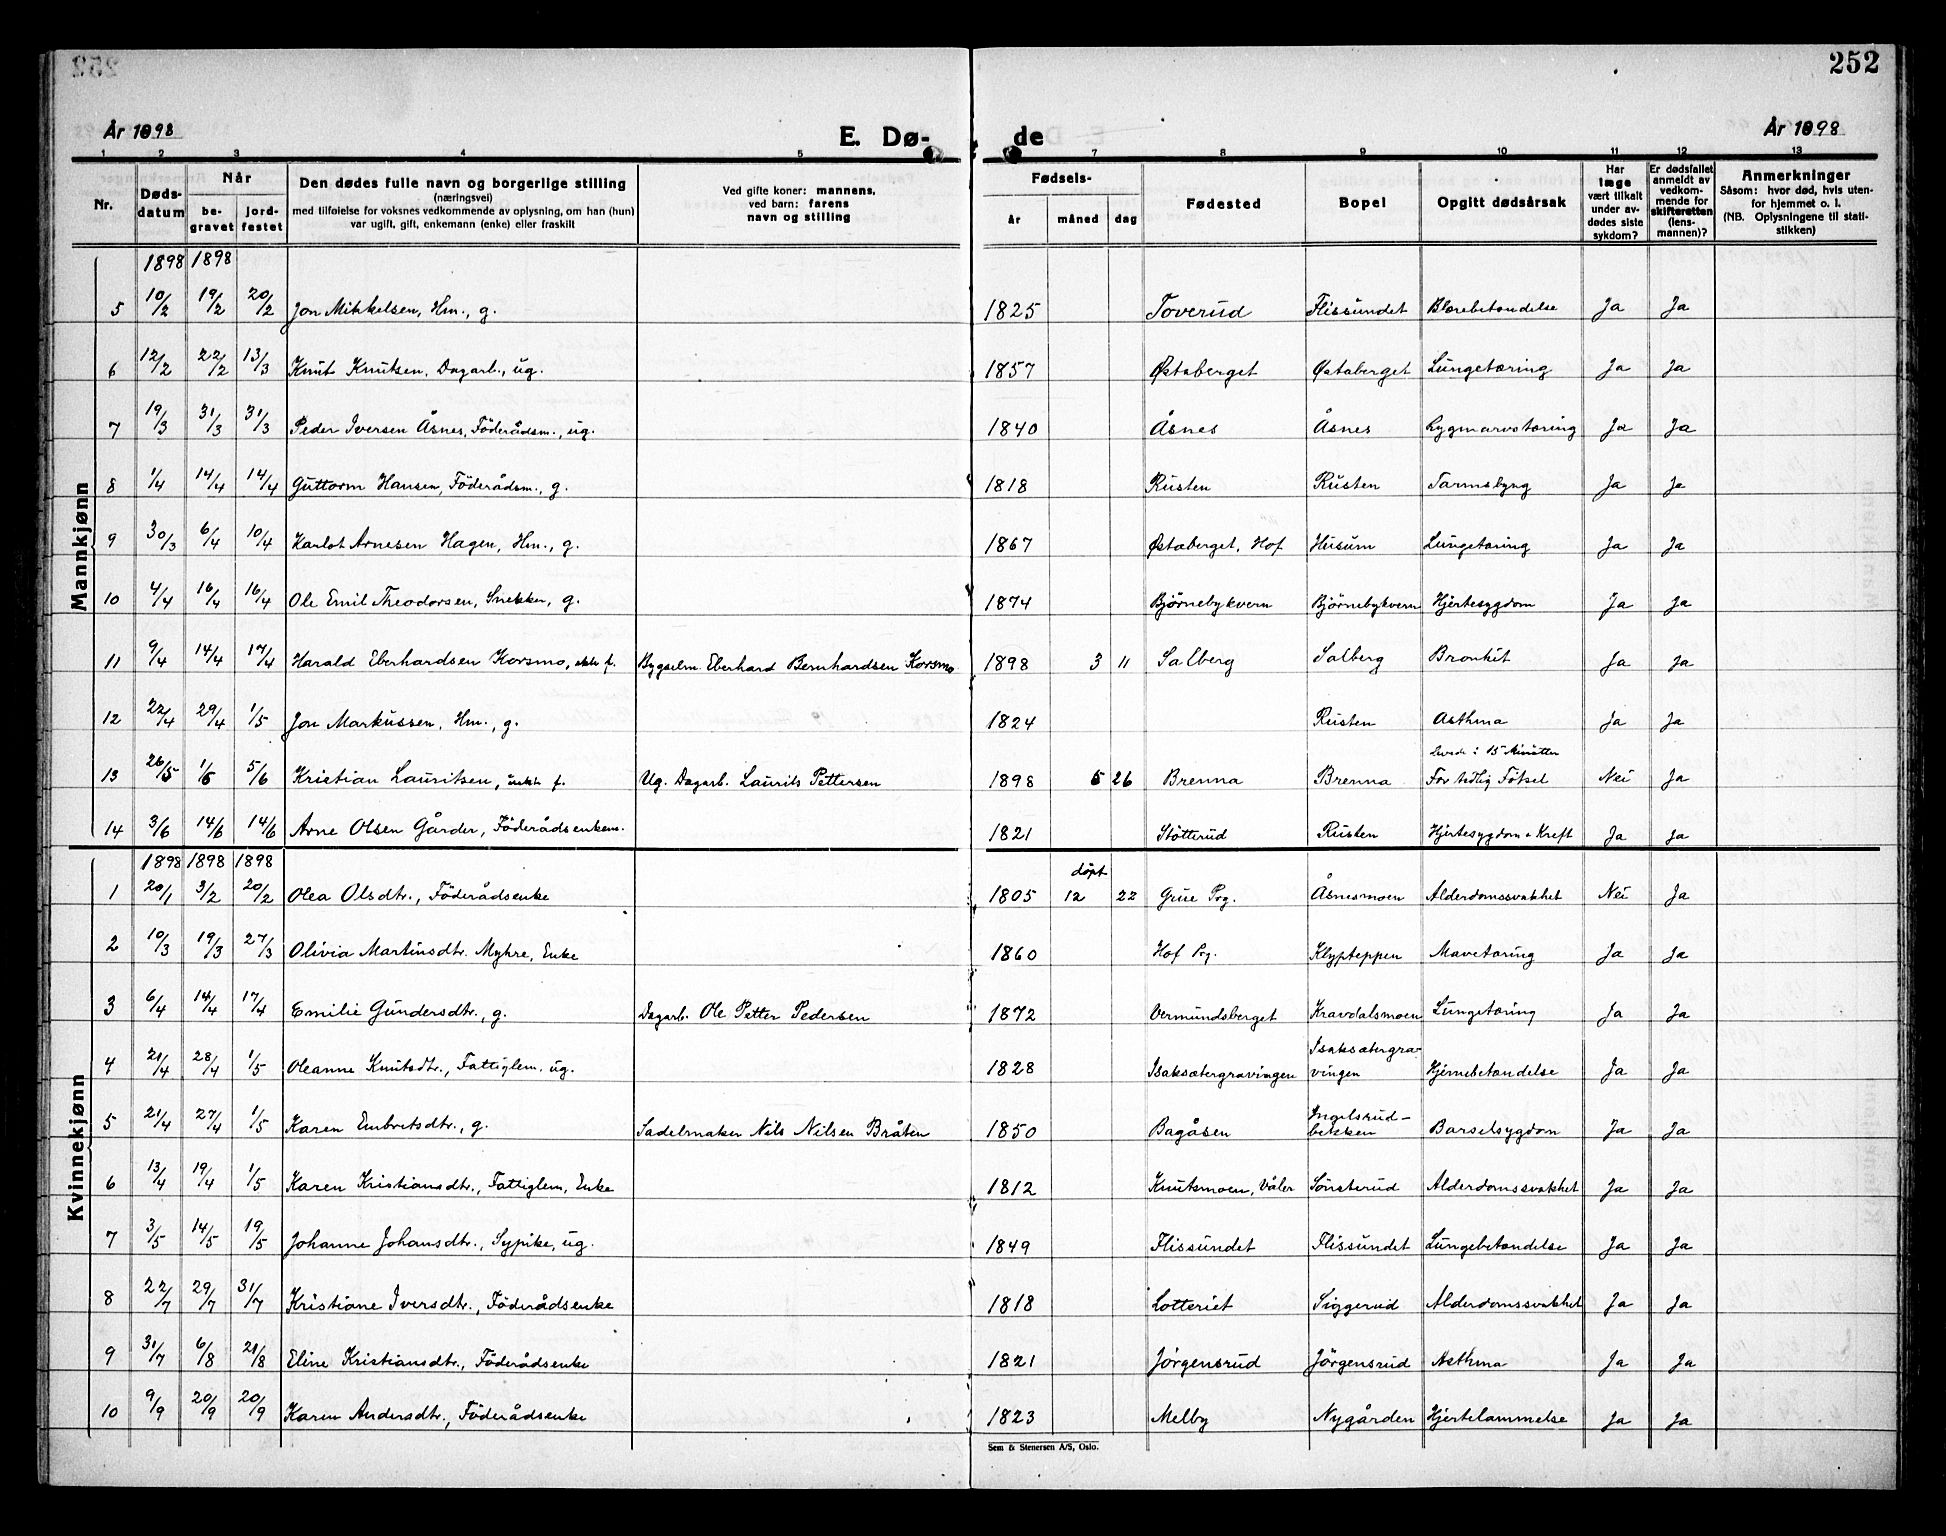 252
År 1898 E. Dø- de År 1898
1 2 3 4 5 7 8 9 10 11 12 13
Nr. | Døds-datum | Når be-gravet | jord-festet | Den dødes fulle navn og borgerlige stilling (næringsvei) med tilføielse for voksnes vedkommende av oplysning, om han (hun) var ugift, gift, enkemann (enke) eller fraskilt | Ved gifte koner: mannens, ved barn: farens navn og stilling | Fødsels- år | måned | dag | Fødested | Bopel | Opgitt dødsårsak | Har læge vært tilkalt under av-dødes siste sykdom? | Er dødsfallet anmeldt av vedkom-mende for skifteretten (lens-mannen)? | Anmerkninger Såsom: hvor død, hvis uten-for hjemmet o. l. (NB. Oplysningene til stati-stikken)
Mannkjønn
1898 1898
5 10/2 19/2 20/2 Jon Mikkelsen, Hm., g. 1825 Toverud Flissundet Blærebetændelse Ja Ja
6 12/2 22/2 13/3 Knut Knutsen, Dagarb., ug. 1857 Østaberget Østaberget Lungetæring Ja Ja
7 19/3 31/3 31/3 Peder Iversen Åsnes, Föderådsm., ug. 1840 Åsnes Åsnes Rygmarvstæring Ja Ja
8 1/4 14/4 14/4 Guttorm Hansen, Föderådsm., g. 1818 Rusten Rusten Tarmslyng Ja Ja
9 30/3 6/4 10/4 Karlot Arnesen Hagen, Hm., g. 1867 Østaberget, Hof Husum Lungetæring Ja Ja
10 4/4 16/4 16/4 Ole Emil Theodorsen, Snekker, g. 1874 Bjørnebykvern Bjørnebykvern Hjertesygdom Ja Ja
11 9/4 14/4 17/4 Harald Eberhardsen Korsmo, ekte f. Bygselm. Eberhard Bernhardsen Korsmo 1898 3 11 Salberg Salberg Bronkit Ja Ja
12 22/4 29/4 1/5 Jon Markussen, Hm., g. 1824 Rusten Asthma Ja Ja
13 26/5 1/6 5/6 Kristian Lauritsen, uekte f. Ug. Dagarb. Laurits Pettersen 1898 5 26 Brenna Brenna Levede i 15 Minutter For tidlig Fötsel Nei Ja
14 3/6 14/6 14/6 Arne Olsen Gårder, Föderådsenkem. 1821 Slötterud Rusten Hjertesygdom + Kreft Ja Ja
Kvinnekjønn
1898 1898 1898 döpt
1 20/1 3/2 20/2 Olea Olsdtr., Föderådsenke 1805 12 22 Grue Prg. Åsnesmoen Alderdomssvakhet Nei Ja
2 10/3 19/3 27/3 Olivia Martinsdtr. Myhre, Enke 1860 Hof Prg. Klypteppen Mavetæring Ja Ja
3 6/4 14/4 17/4 Emilie Gundersdtr., g. Dagarb. Ole Petter Pedersen 1872 Vermundsberget Kravdalsmoen Lungetæring Ja Ja
4 21/4 28/4 1/5 Oleanne Knutsdtr., Fattiglem, ug. 1828 Isaksætergravingen Isaksætergra-vingen Hjernebetændelse Ja Ja
5 21/4 27/4 1/5 Karen Embretsdtr., g. Sadelmaker Nils Nilsen Bråten 1850 Bagåsen Ingelsrud-bekken Barselsygdom Ja Ja
6 13/4 19/4 1/5 Karen Kristiansdtr., Fattiglem, Enke 1812 Knutsmoen, Våler Sönsterud Alderdomssvakhet Ja Ja
7 3/5 14/5 19/5 Johanne Johansdtr., Sypike, ug. 1849 Flissundet Flissundet Lungebetændelse Ja Ja
8 22/7 29/7 31/7 Kristiane Iversdtr., Föderådsenke 1818 Lotteriet Siggerud Alderdomssvakhet Ja Ja
9 31/7 6/8 21/8 Eline Kristiansdtr., Föderådsenke 1821 Jörgensrud Jörgensrud Asthma Ja Ja
10 9/9 20/9 20/9 Karen Andersdtr., Föderådsenke 1823 Melby Nygården Hjertelammelse Ja Ja
Sem & Stenersen A/S, Oslo.